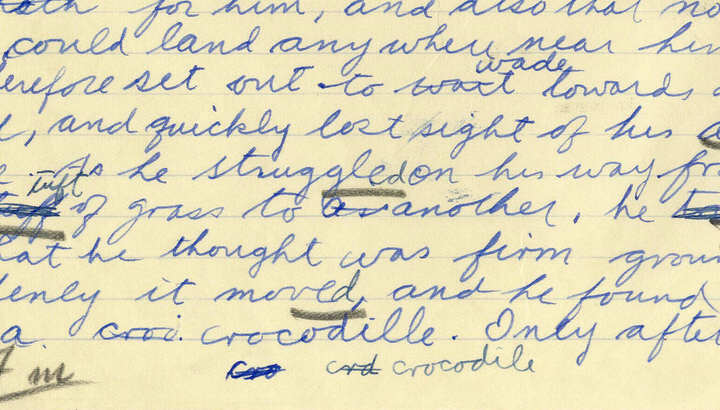 for him, and also that no
could land anywhere near him
erefore set out to wait wade towards
, and quickly lost sight of his
As he struggled on his way fr
tuft of grass to as another, he
hat he thought was firm groun
denly it moved, and he found
a croi. crocodille. Only after
cro crd crocodile